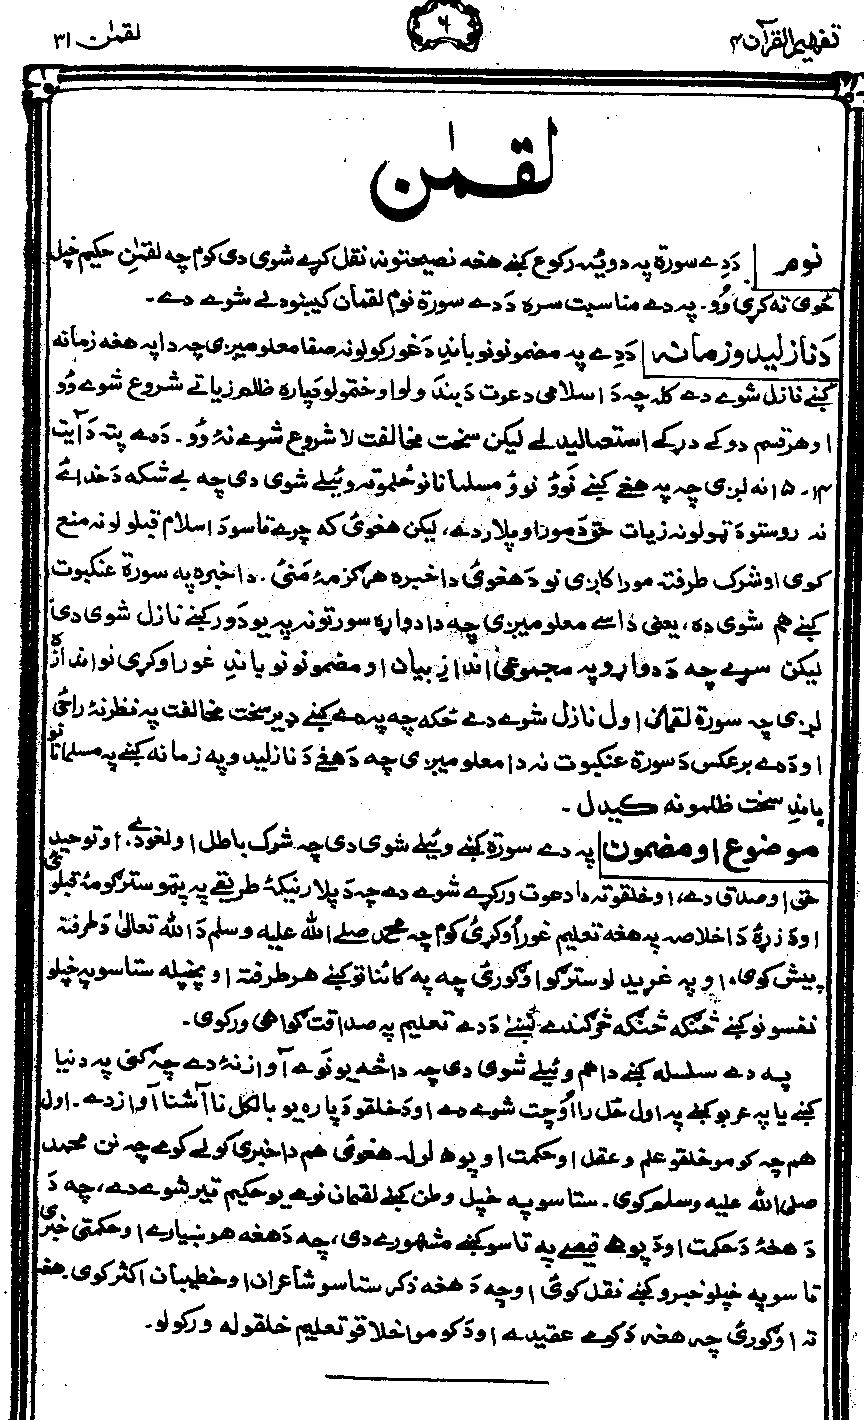 تفهیم القرآن ۴
۶
لقمٰن ۳۱
لقمٰن
نوم دَدِے سورة په دويُمه رکوع کښے هغه نصيحتونه نقل کړے شوی دی کوم چه لقمٰنِ حکيم خپل
ځوی ته کړی وُو۔ په دے مناسبت سره دَ دے سورة نوم لقمان کيښودلے شوے دے۔
دَ نازليدو زمانه دَدِے په مضمونونو باندِ دَ غور کولو نه صفا معلوميږی چه دا په هغه زمانه
کښے نازل شوے دے کله چه دَ اسلامی دعوت دَ بندَ ولو او ختمولو دَپاره ظلم زياتے شروع شوے وُو
او هر قسم دوکے درکے استعماليدلے ليکن سخت مخالفت لا شروع شوے نۀ وُو۔ دَدے پته دَ آيت
۱۴۔ ۱۵ نه لږی چه په هغے کښے نَوو نوو مسلمانانو خلقوته وئيلے شوی دی چه بے شکه دَ خدائے
نه روستو دَ ټولو نه زيات حق دَ مور او پلار دے، ليکن هغوئ که چرے تاسو دَ اسلام قبلولو نه منع
کوی او شرک طرفته مو راکاږی نو دَ هغوئ دا خبره هرګز مۀ منئ۔ دا خبره په سورة عنکبوت
کښے هم شوی ده، يعنی دَاسے معلوميږی چه دا دواړه سورتونه په يو دَور کښے نازل شوی دی
ليکن سړے چه دَ دواړو په مجموعی اندازِ بيان او مضمونونو باندِ غور اوکړی نو اندازه
لږی چه سورة لقمان اول نازل شوے دے ځکه چه په دے کښے ډير سخت مخالفت په نظر نۀ راځی
او دَدے برعکس دَ سورة عنکبوت نه دا معلوميږی چه دَ هغے دَ نازليدو په زمانه کښے په مسلمانانو
باندِ سخت ظلمونه کيدل۔
موضوع او مضمون په دے سورة کښے وئيلے شوی دی چه شرک باطل او لغو دے، او توحيد
حق او صداق دے، او خلقوته دا دعوت ورکړے شوے دے چه دَ پلار نيکۀ طريقے په پټو سترګو مۀ قبلوئ
او دَ زړۀ دَ اخلاصه په هغه تعليم غور اُوکړئ کوم چه محمد صلے الله عليه وسلم دَ الله تعالیٰ دَ طرفته
پيش کوی، او په غړيدلو سترګو اوګورئ چه په کائناتو کښے هر طرفته او پخپله ستاسو په خپلو
نفسونو کښے څنګه څنګه څرګندے نښے دَ دے تعليم په صداقت گواهی ورکوی۔
په دے سلسله کښے دا هم وئيلے شوی دی چه دا څه يو نَوے آواز نۀ دے چه ګنی په دنيا
کښے يا په عربو کښے په اول ځل را اُوچت شوے دے او دَ خلقو دَپاره يو بالکل نا آشنا آواز دے۔ اول
هم چه کومو خلقو علم و عقل او حکمت او پوهه لرله هغوئ هم دا خبرے کولے کومے چه نن محمد
صلی الله عليه وسلم کوی۔ ستاسو په خپل وطن کښے لقمان نومے يو حکيم تير شوے دے، چه دَ
دَ هغۀ دَ حکمت او دَ پوهے قيصے په تاسو کښے مشهورے دی، چه دَ هغه هوښيارے او حکمتی خبرے
تاسو په خپلو خبرو کښے نقل کوئ او چه دَ هغه ذکر ستاسو شاعران او خطيبان اکثر کوی۔ هغه
ته اوګورئ چه هغه دَ کومے عقيدے او دَ کومو اخلاقو تعليم خلقو له ورکولو۔